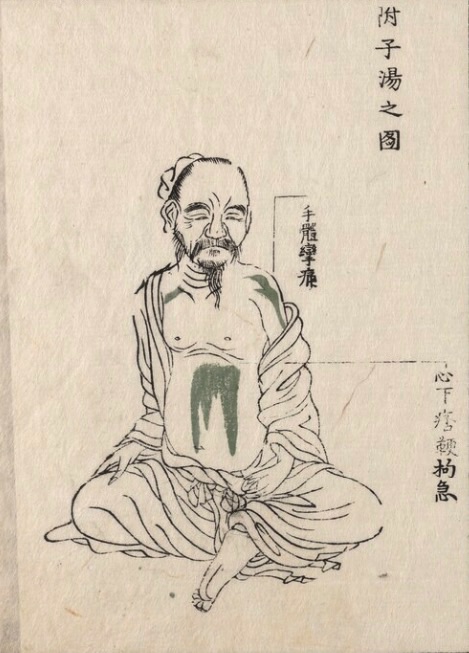 附子湯之圖
心下痞鞕拘急
手體攣痛